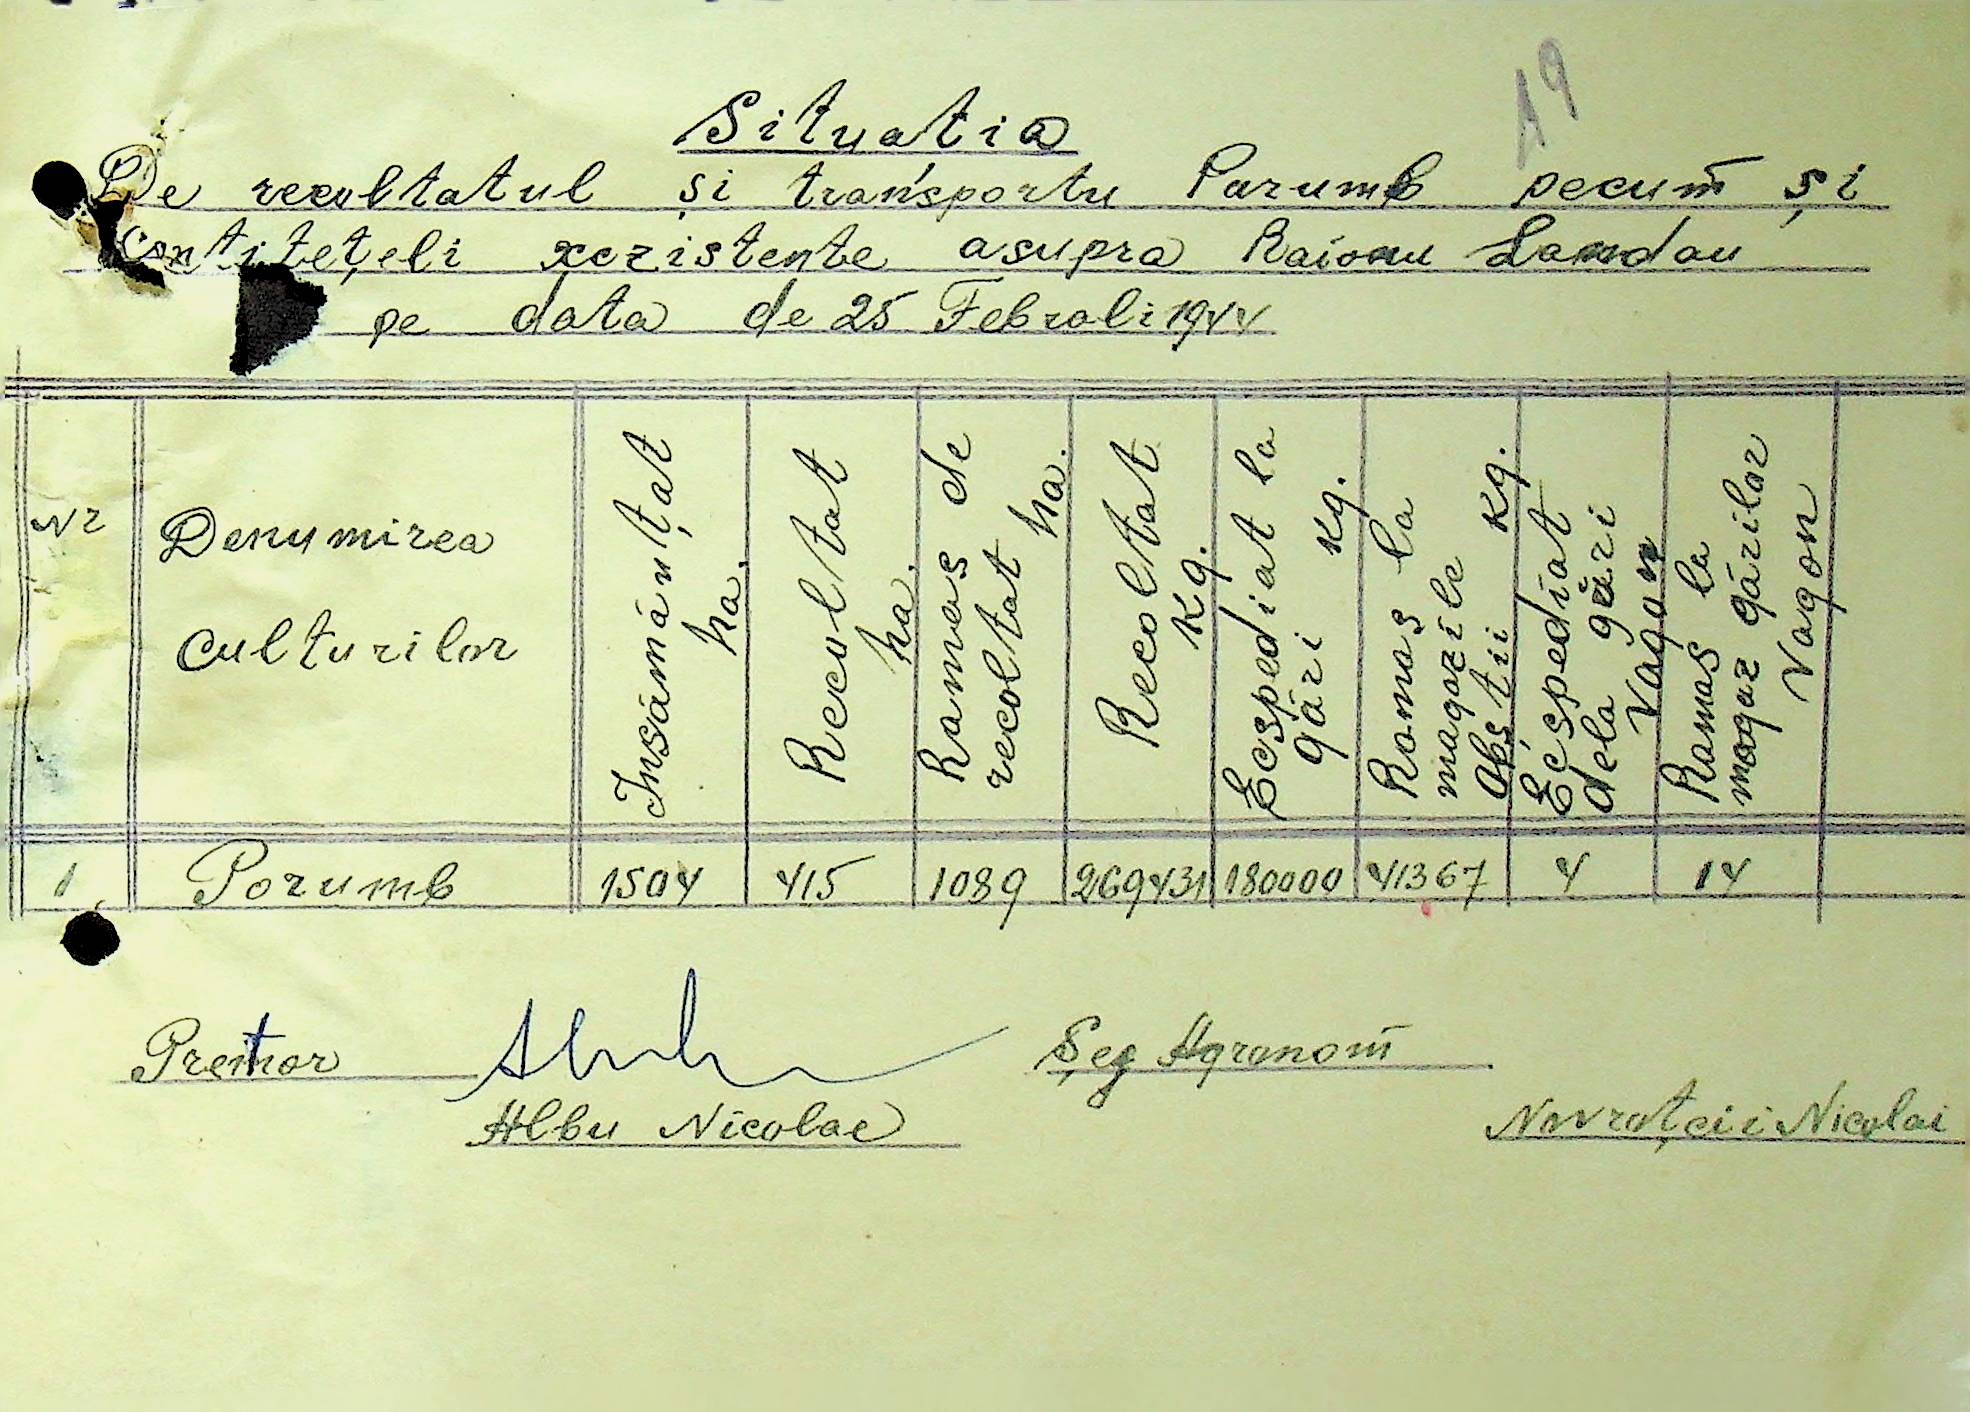 19
Situatia
De recultatul și transportu Porumb pecum și
Contitețeli xezistente asupra Raionu Landau
pe data de 25 Febroli 1944
Nr
Denumirea
culturilor
Insămânțat
ha.
Recoltat
ha.
Ramas de
recoltat ha.
Recoltat
kg.
Ecspediat la
gări kg.
Ramas la
magaziile
Obștii kg.
Ecspediat
dela gări
Vagon
Ramas la
magaz gărilor
Vagon
1. Porumb 1504 415 1089 269431 180000 41367 4 14
Pretor
Albu Nicolae
Șeg Agronom
Novrațcii Nicolai